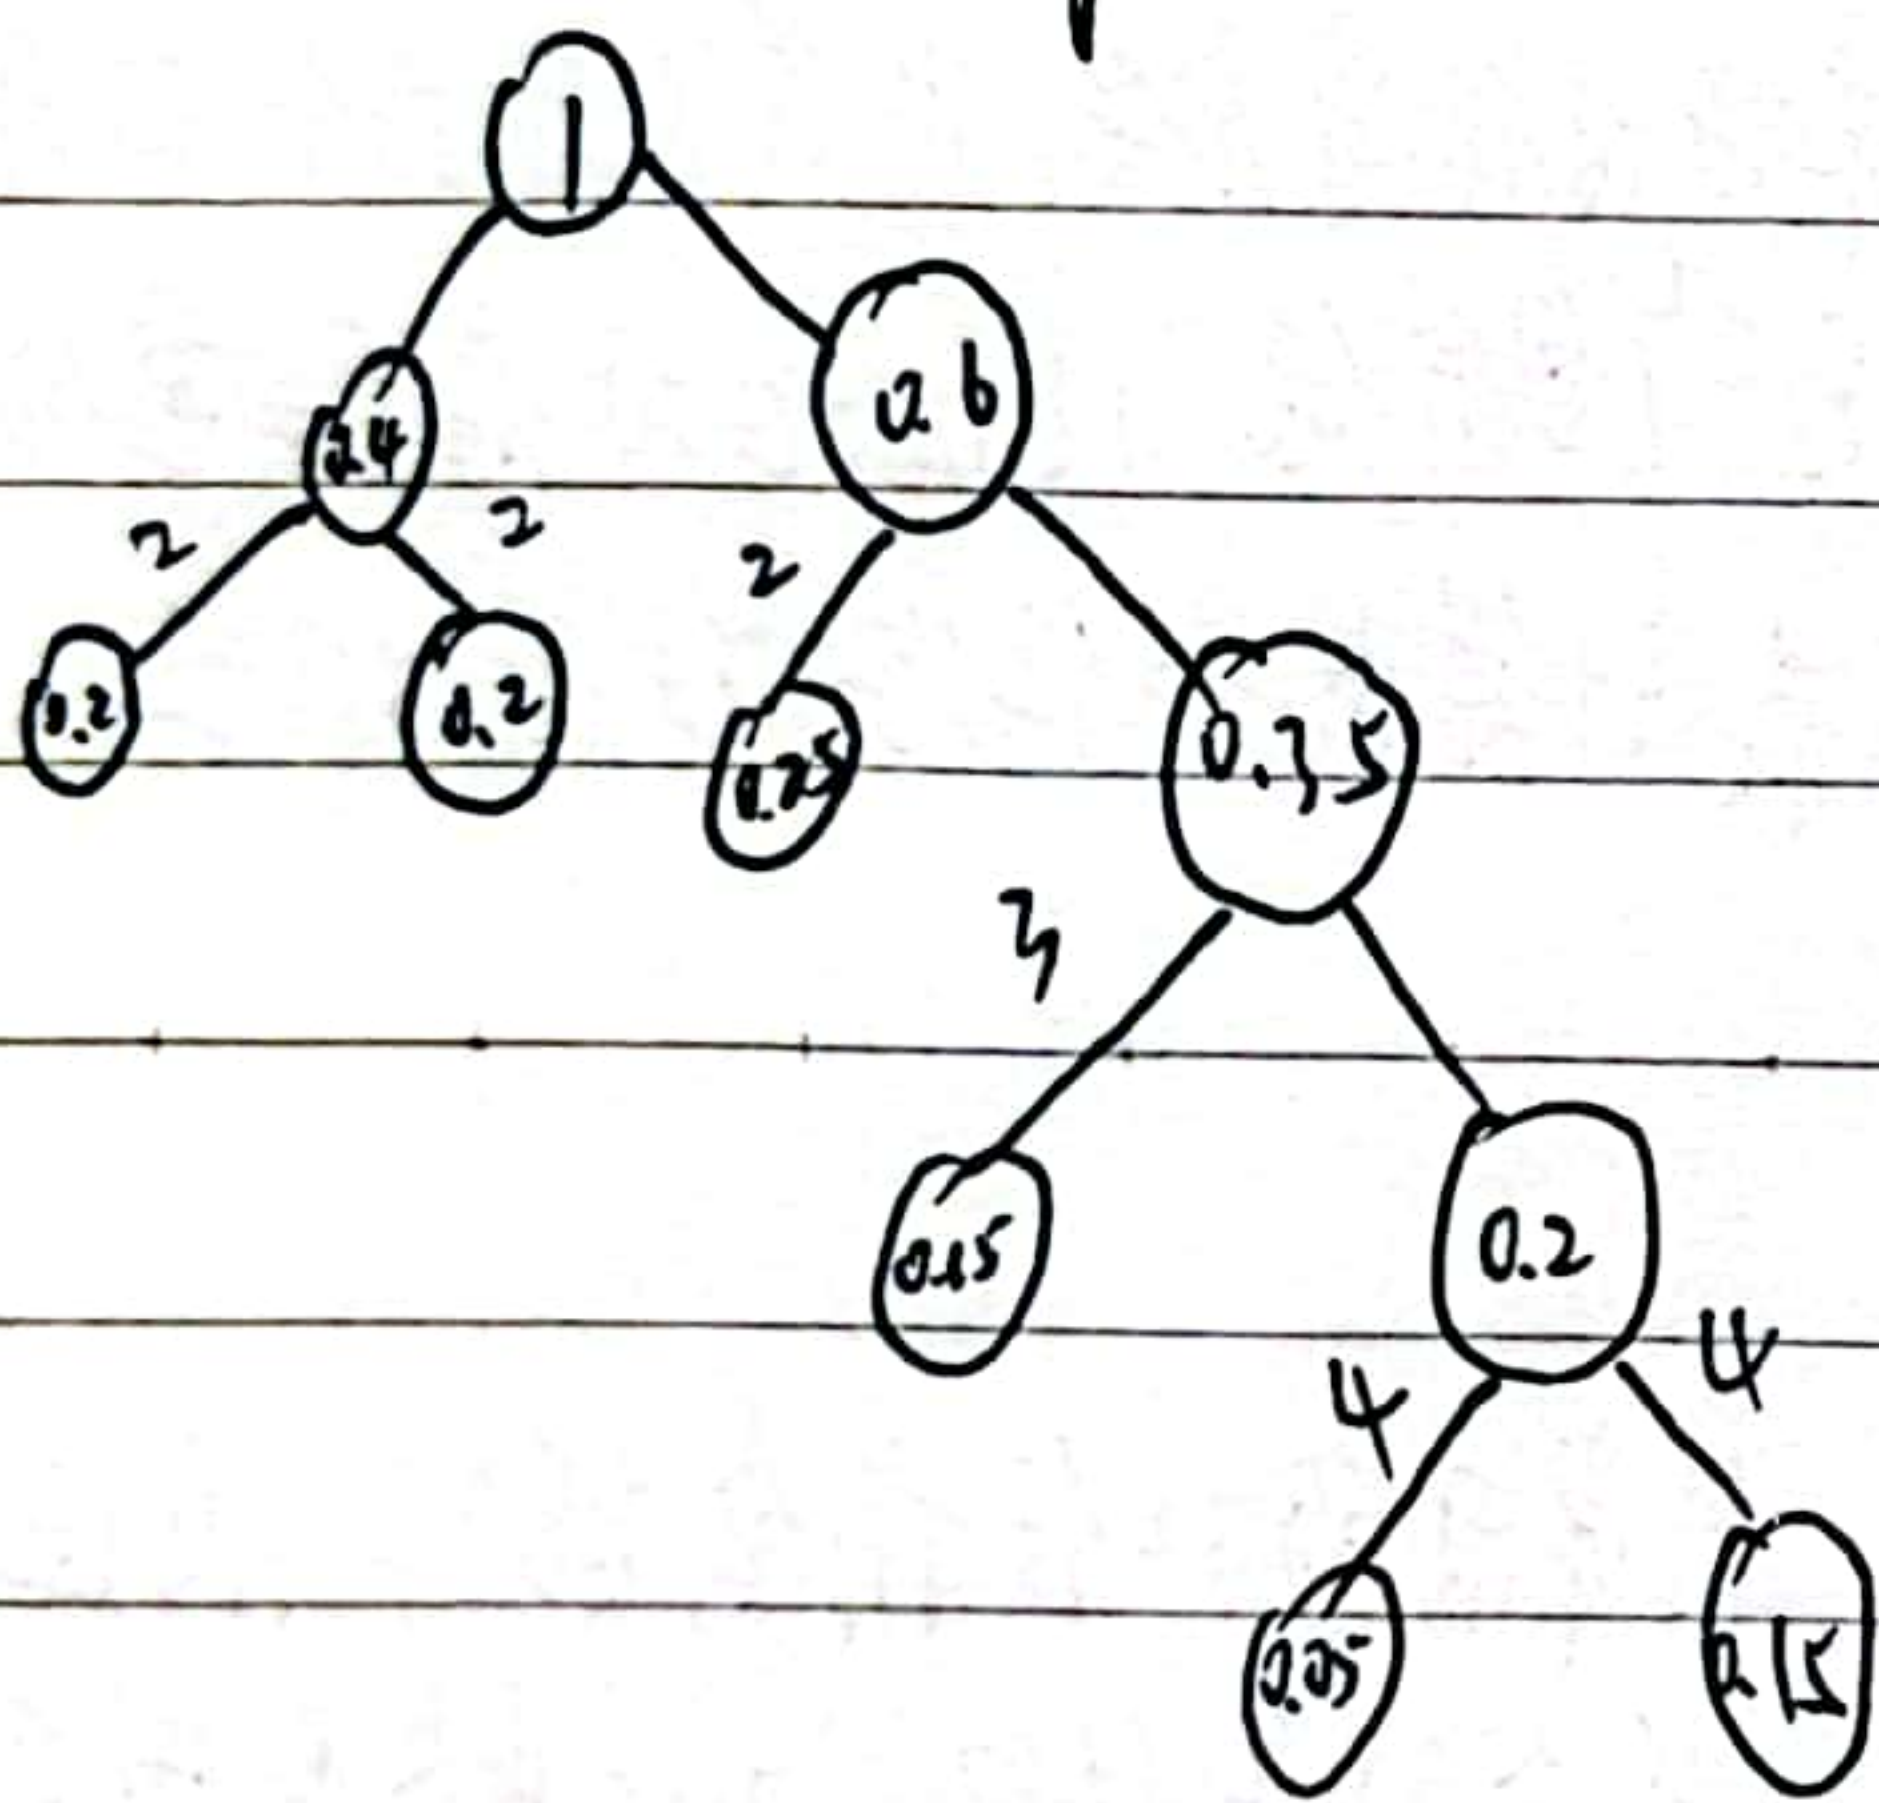 1
0.4 0.6
2 2 2
0.2 0.2 0.25 0.35
3
0.15 0.2
4 4
0.05 0.15